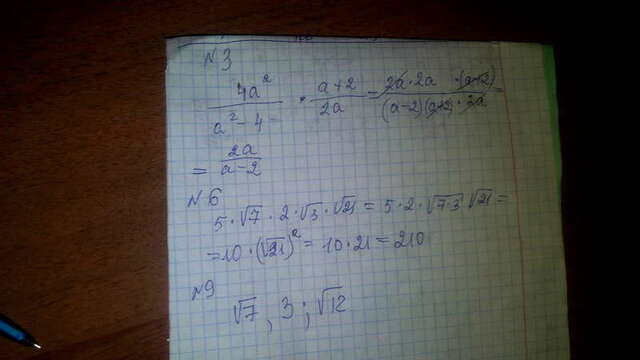 №3
4a²/(a²-4) · (a+2)/2a = 2a·2a·(a+2)/((a-2)(a+2)·2a) =
= 2a/(a-2)
№6
5·√7·2·√3·√21 = 5·2·√7·3 √21 =
=10·(√21)² = 10·21 = 210
№9
√7, 3; √12